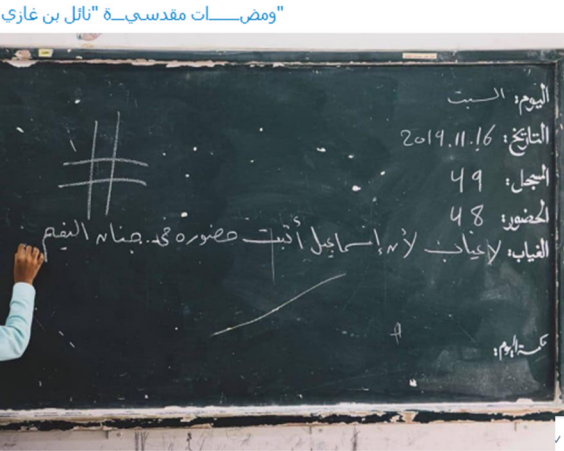 "ومضــــات مقدسيــة "نائل بن غازي
اليوم: السبت
التاريخ: 2019.11.16
المسجل: 49
الحضور: 48
الغياب: لا غياب لأن إسماعيل أثبت حضوره في جنان النعيم
حكمة اليوم: